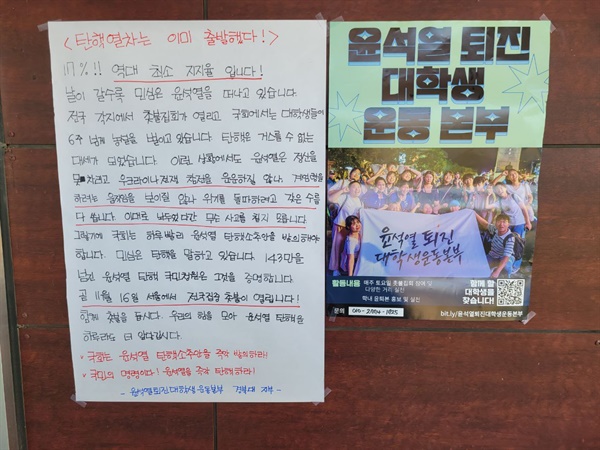 < 탄핵열차는 이미 출발했다! >
17%!! 역대 최소 지지율 입니다!
날이 갈수록 민심은 윤석열을 떠나고 있습니다.
전국 각지에서 촛불집회가 열리고 국회에서는 대학생들이
6주 넘게 농성을 벌이고 있습니다. 탄핵은 거스를 수 없는
대세가 되었습니다. 이런 상황에서도 윤석열은 정신을
못 차리고 우크라이나 전쟁 참전을 운운하질 않나, 계엄령을
하려는 움직임을 보이질 않나 위기를 돌파하려고 갖은 수를
다 씁니다. 이대로 놔두었다간 무슨 사고를 칠지 모릅니다.
그렇기에 국회는 하루빨리 윤석열 탄핵소추안을 발의해야
합니다. 민심은 탄핵을 말하고 있습니다. 143만을
넘긴 윤석열 탄핵 국민청원은 그것을 증명합니다.
곧 11월 16일 서울에서 전국집중 촛불이 열립니다!
함께 촛불을 듭시다. 우리의 힘을 모아 윤석열 탄핵을
하루라도 더 앞당깁시다.
국회는 윤석열 탄핵소추안을 즉각 발의하라!
국민의 명령이다! 윤석열을 즉각 탄핵하라!
- 윤석열퇴진 대학생 운동본부 경북대 지부 -
윤석열 퇴진
대학생
운동 본부
윤석열 퇴진
대학생운동본부
활동내용
매주 토요일 촛불집회 참여 및
다양한 거리 실천
학내 윤퇴본 홍보 및 실천
문의
함께 할
대학생을
찾습니다!
bit.ly/윤석열퇴진대학생운동본부